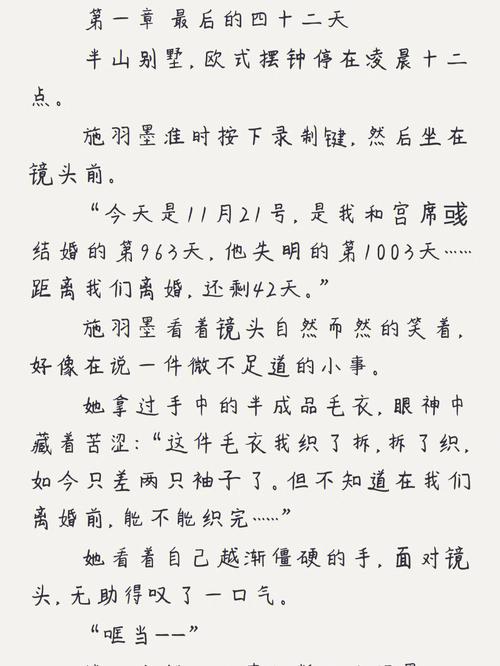 第一章 最后的四十二天
半山别墅，欧式摆钟停在凌晨十二
点。
施羽墨准时按下录制键，然后坐在
镜头前。
“今天是11月21号，是我和宫席彧
结婚的第963天，他失明的第1003天……
距离我们离婚，还剩42天。”
施羽墨看着镜头自然而然的笑着，
好像在说一件微不足道的小事。
她拿过手中的半成品毛衣，眼神中
藏着苦涩：“这件毛衣我织了拆，拆了织，
如今只差两只袖子了。但不知道在我们
离婚前，能不能织完……”
她看着自己越渐僵硬的手，面对镜
头，无助得叹了一口气。
“哐当——”